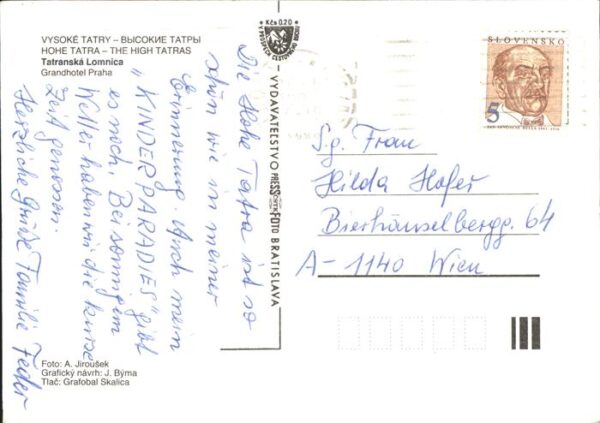 VYSOKÉ TATRY – ВЫСОКИЕ ТАТРЫ
HOHE TATRA – THE HIGH TATRAS
Tatranská Lomnica
Grandhotel Praha
Die Hohe Tatra ist so
schön wie in meiner
Erinnerung. Auch mein
"KINDERPARADIES" gibt
es noch. Bei sonnigem
Wetter haben wir die kurze
Zeit genossen.
Herzliche Grüße Familie Feder
Foto: A. Jiroušek
Grafický návrh: J. Býma
Tlač: Grafobal Skalica
Kčs 0,20
VYDAVATEĽSTVO PRESSFOTO BRATISLAVA
SLOVENSKO
5
S.g. Frau
Hilda Hofer
Bierhäuselbergg. 64
A - 1140 Wien